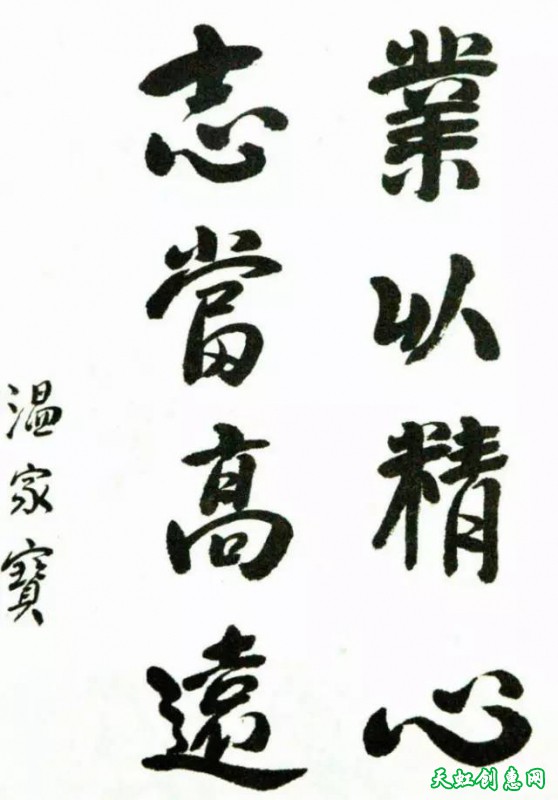 業以精心
志當高遠
温家寶
天虹创惠网